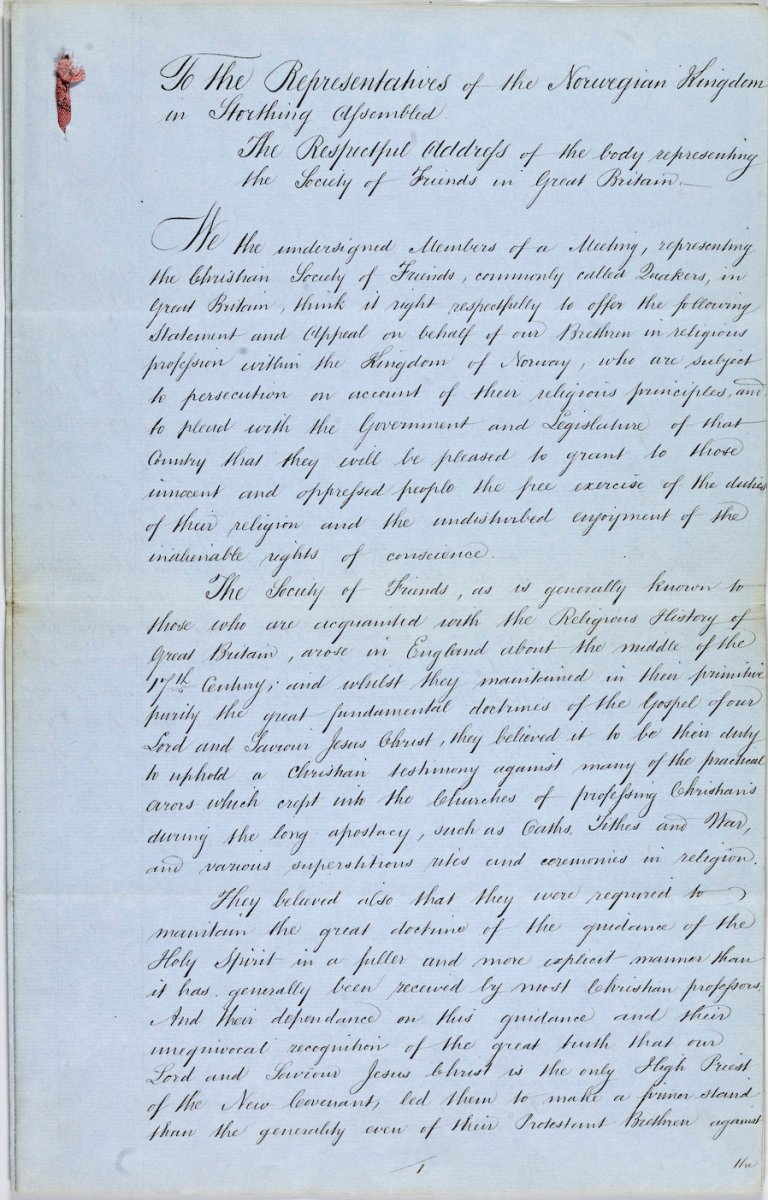 To the Representatives of the Norwegian Kingdom
in Storthing Assembled.
The Respectful Address of the body representing
the Society of Friends in Great Britain.—
We the undersigned Members of a Meeting, representing
the Christian Society of Friends, commonly called Quakers, in
Great Britain, think it right respectfully to offer the following
Statement and Appeal on behalf of our Brethren in religious
profession within the Kingdom of Norway, who are subject
to persecution on account of their religious principles, and
to plead with the Government and Legislature of that
Country that they will be pleased to grant to those
innocent and oppressed people the free exercise of the duties
of their religion and the undisturbed enjoyment of the
inalienable rights of conscience.
The Society of Friends, as is generally known to
those who are acquainted with the Religious History of
Great Britain, arose in England about the middle of the
17th Century; and whilst they maintained in their primitive
purity the great fundamental doctrines of the Gospel of our
Lord and Saviour Jesus Christ, they believed it to be their duty
to uphold a Christian testimony against many of the practical
errors which crept into the Churches of professing Christians
during the long apostacy, such as Oaths, Tithes and War,
and various superstitious rites and ceremonies in religion.
They believed also that they were required to
maintain the great doctrine of the guidance of the
Holy Spirit in a fuller and more explicit manner than
it has generally been received by most Christian professors.
And their dependance on this guidance and their
unequivocal recognition of the great truth that our
Lord and Saviour Jesus Christ is the only High Priest
of the New Covenant, led them to make a firmer stand
than the generality even of their Protestant Brethren against
1
the